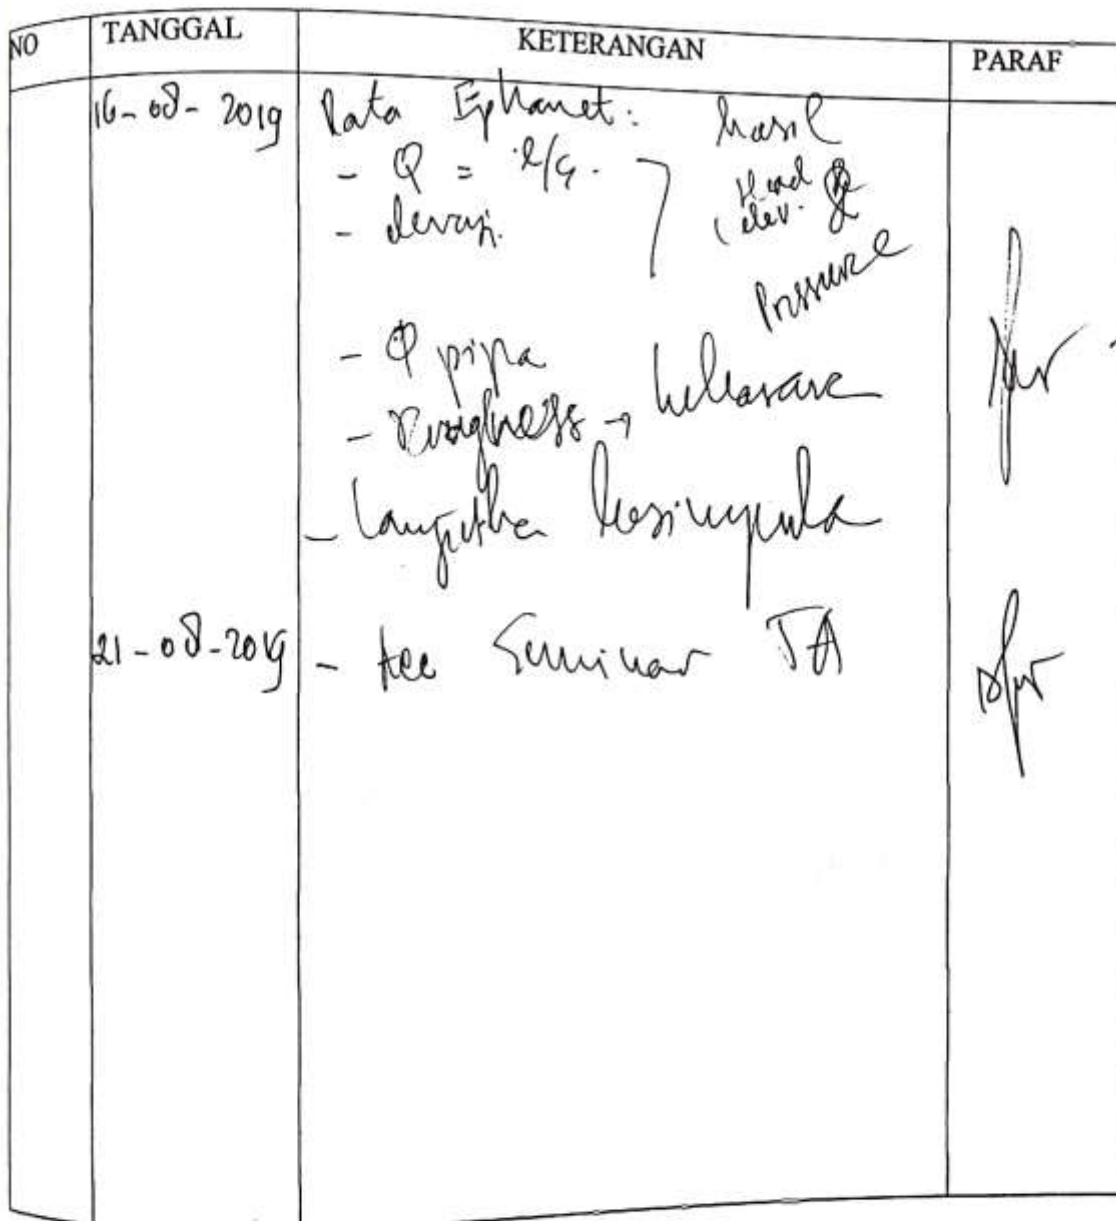 NO TANGGAL KETERANGAN PARAF
16-08-2019 Data Ephanet: hasil
- Q = l/s. Head
- elevasi. (elev. &
Pressure
- Φ pipa
- Rougness → kekasaran
- Lanjutkan kesimpula
21-08-2019 - Acc Seminar TA